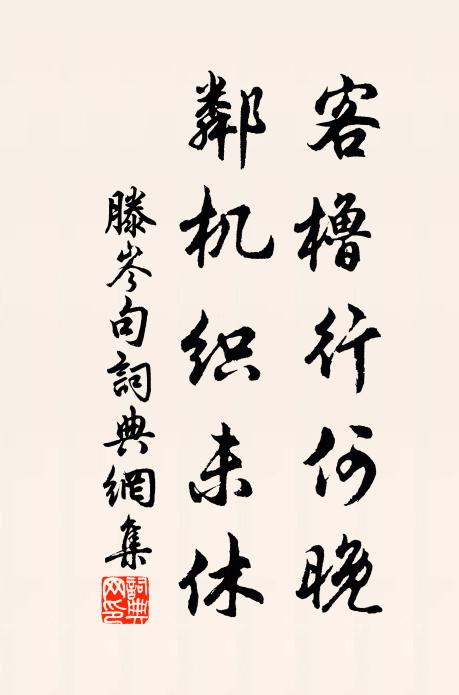 客櫓行何晚
鄰机织未休
滕岑句詞典網集
詞典网印